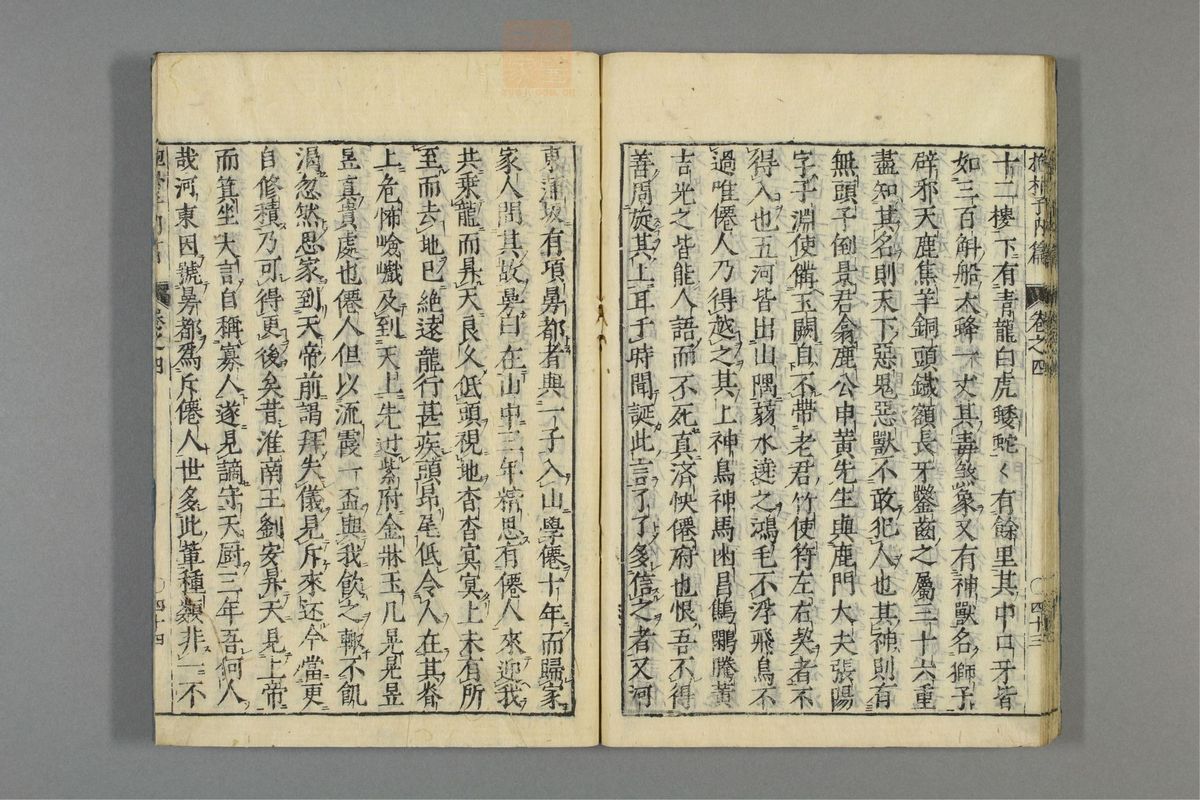 抱朴子内篇 卷之四 四十三
十二樓下有青龍白虎蟉蛇〱有餘里其中口牙皆
如三百斛船大蜂一丈其毒煞象又有神獸名獅子
辟邪天鹿焦羊銅頭鐵額長牙鑿齒之屬三十六種
盡知其名則天下惡鬼惡獸不敢犯人也其神則有
無頭子倒景君翕鹿公中黃先生與鹿門大夫張陽
字子淵使備玉闕自不帶老君竹使符左右契者不
得入也五河皆出山隅弱水遶之鴻毛不浮飛鳥不
過唯僊人乃得越之其上神鳥神馬幽昌鷦鵬騰黃
吉光之皆能人語而不死真済怏僊府也恨吾不得
善周旋其上耳于時聞誕此言了了多信之者又河
東蒲坂有項曼都者與一子入山學僊十年而歸家
家人問其故曼曰在山中三年精思有僊人來迎我
共乘龍而昇天良久低頭視地杳杳冥冥上未有所
至而去地已絕遠龍行甚疾頭昂尾低令人在其脊
上危怖嶮巇及到天上先过紫府金牀玉几晃晃昱
昱真貴處也僊人但以流霞一盃與我飲之輙不飢
渴忽然思家到天帝前謁拜失儀見斥來还令當更
自修積乃可得更後矣昔淮南王劉安昇天見上帝
而箕坐大言自稱寡人遂見謫守天厨三年吾何人
哉河東因號曼都爲斥僊人世多此輩種類非一不
卷之四 四十四